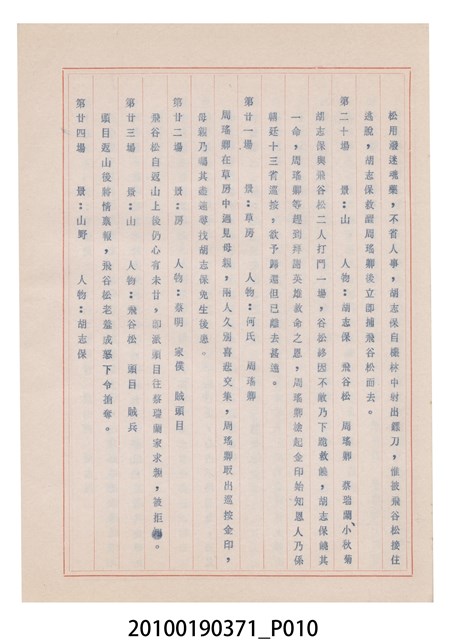 松用潑迷魂藥，不省人事，胡志保自樹林中射出鏢刀，惟被飛谷松接住
逃脫，胡志保救醒周瑤卿後立即捕飛谷松而去。
第二十場　景：山　人物：胡志保　飛谷松　周瑤卿　蔡瑞蘭、小秋菊
胡志保與飛谷松二人打鬥一場，谷松終因不敵乃下跪救饒，胡志保饒其
一命，周瑤卿等趕到拜謝英雄救命之恩，周瑤卿拾起金印始知恩人乃係
朝廷十三省巡按，欲予歸還但已離去甚遠。
第廿一場　景：草房　人物：何氏　周瑤卿
周瑤卿在草房中遇見母親，兩人久別喜悲交集，周瑤卿取出巡按金印，
母親乃囑其盡速尋找胡志保先生後患。
第廿二場　景：房　人物：蔡明　家僕　賊頭目
飛谷松自返山上後仍心有未甘，即派頭目往蔡瑞蘭家求親，被拒。
第廿三場　景：山　人物：飛谷松　頭目　賊兵
頭目返山後將情稟報，飛谷松老羞成怒下令搶奪。
第廿四場　景：山野　人物：胡志保
20100190371_P010